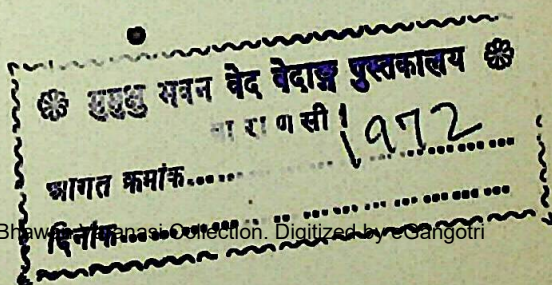 ❀ मुमुक्षु भवन वेद वेदाङ्ग पुस्तकालय ❀
वा रा ण सी ।
आगत क्रमांक..... 1972
दिनांक.....
Bhawan Varanasi Collection. Digitized by eGangotri